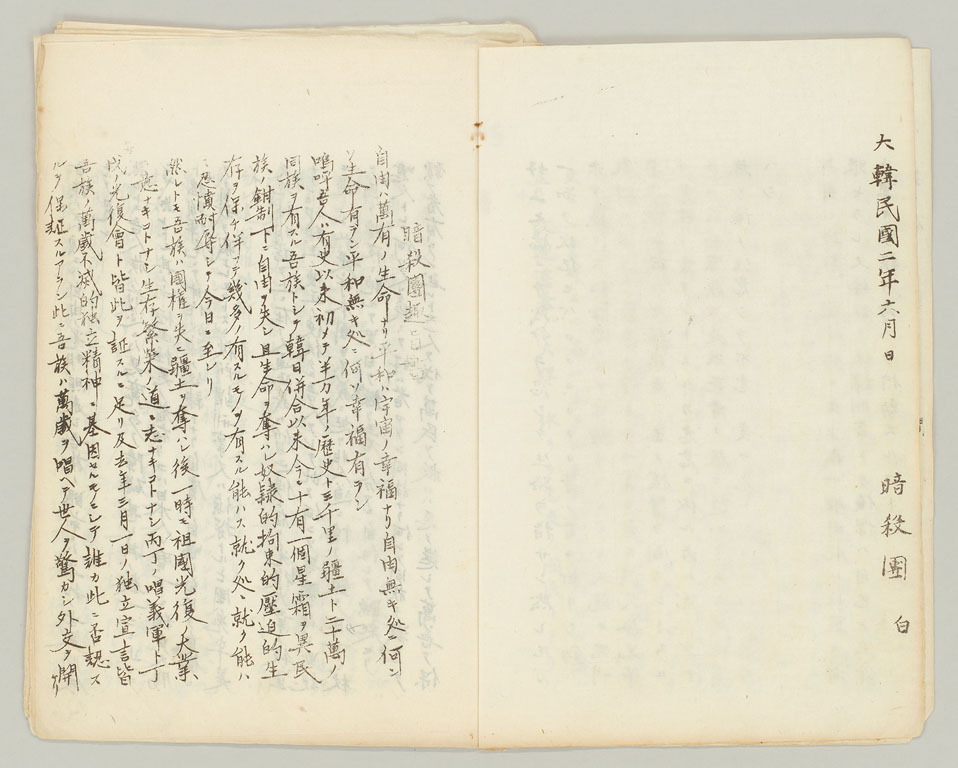 大韓民國二年六月 日
暗殺團 白
暗殺團趣旨
自由ハ萬有ノ生命ナリ平和ハ宇宙ノ幸福ナリ自由無キ処ニ何ソ
生命有ラン平和無キ処ニ何ソ幸福有ラン
嗚呼吾人ハ有史以来初メテ半万年ノ歴史ト三千里ノ疆土ト二千萬ノ
同族ヲ有スル吾族トシテ韓日併合以来今ニ十有一個星霜ヲ異民
族ノ鉗制下ニ自由ヲ失シ且生命ヲ奪ハレ奴隷的拘束的壓迫的生
存ヲ保チ伴フテ幾多ノ有スルモノヲ有スル能ハス就ク処ニ就ク能ハ
忍憤耐辱シテ今日ニ至レリ
然レトモ吾族ハ國權ヲ失ヒ疆土ヲ奪ハレ後一時モ祖國光復ノ大業ニ
意ナキコトナシ生存繁榮ノ道ニ志ナキコトナシ丙丁ノ唱義軍ト丁
戊ノ光復會ト皆此ヲ証スルニ足リ及去年三月一日ノ独立宣言皆
吾族ノ萬歳不滅的独立精神ニ基因セルモノニシテ誰カ此ニ否認ス
ルヲ保証スルアラン此ニ吾族ハ萬歳ヲ唱ヘテ世人ヲ驚カシ外交ヲ開ケリ